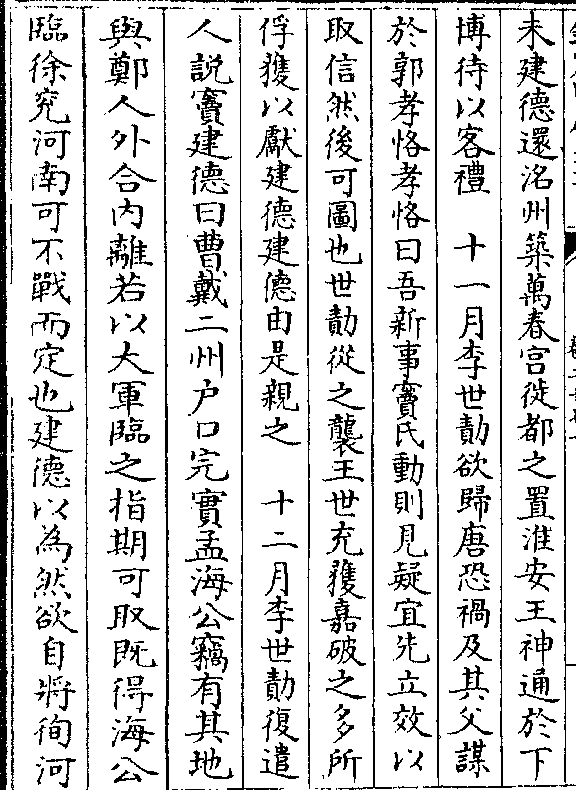 未建德還洺州築萬春宮徙都之置淮安王神通於下
博待以客禮　十一月李世勣欲歸唐恐禍及其父謀
於郭孝恪孝恪曰吾新事竇氏動則見疑宜先立效以
取信然後可圖也世勣從之襲王世充獲嘉破之多所
俘獲以獻建德建德由是親之　十二月李世勣復遣
人説竇建德曰曹戴二州户口完實孟海公竊有其地
與鄭人外合内離若以大軍臨之指期可取既得海公
臨徐兖河南可不戰而定也建德以為然欲自將徇河